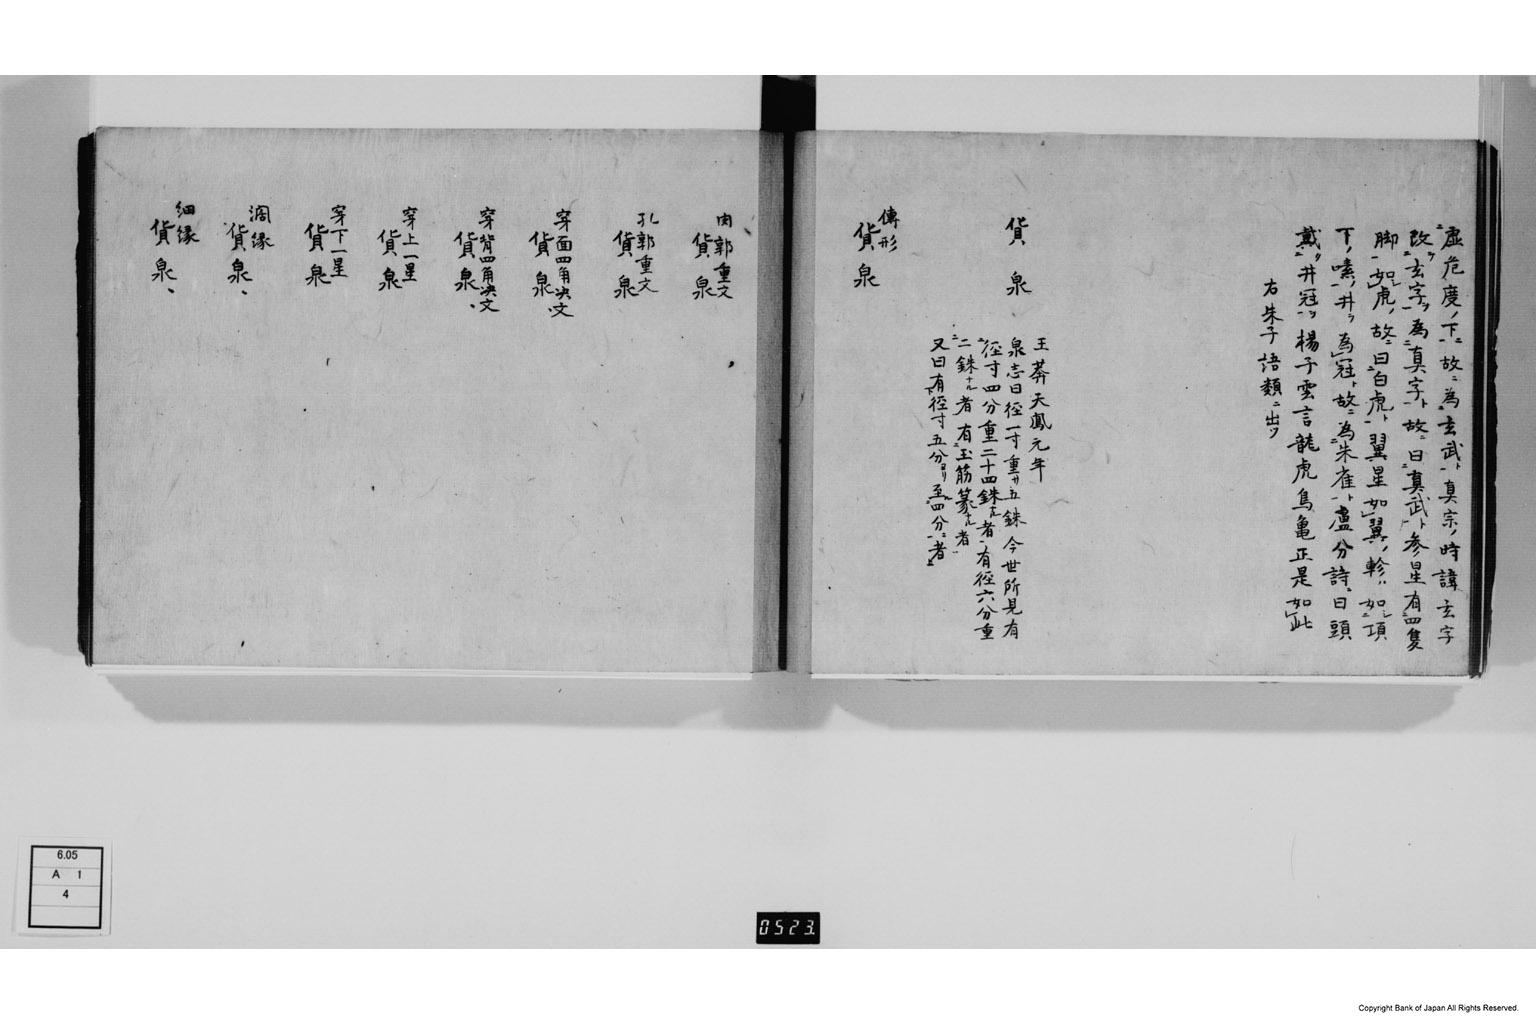 虚危度ノ下ニ故ニ為玄武ト真宗ノ時諱玄字
改玄字ヲ為真字ト故ニ曰真武ト参星有四隻
脚如虎故ニ曰白虎ト翼星如翼軫如項
下ノ嗉井ヲ為冠ト故ニ為朱雀ト盧仝詩ニ曰頭
戴井冠ヲ楊子雲言龍虎鳥亀正是如此
右朱子語類ニ出ツ
貨泉
王莽天鳳元年
泉志曰径一寸重サ五銖今世所見有
径寸四分重二十四銖ナル者有径六分重
二銖ナル者有玉筋篆ナル者
又曰有径寸五分ヨリ至四分者
傳形
貨泉
肉郭重文
貨泉
孔郭重文
貨泉
穿面四角决文
貨泉
穿背四角决文
貨泉
穿上一星
貨泉
穿下一星
貨泉
濶縁
貨泉
細縁
貨泉
6.05
A 1
4
0523
Copyright Bank of Japan All Rights Reserved.